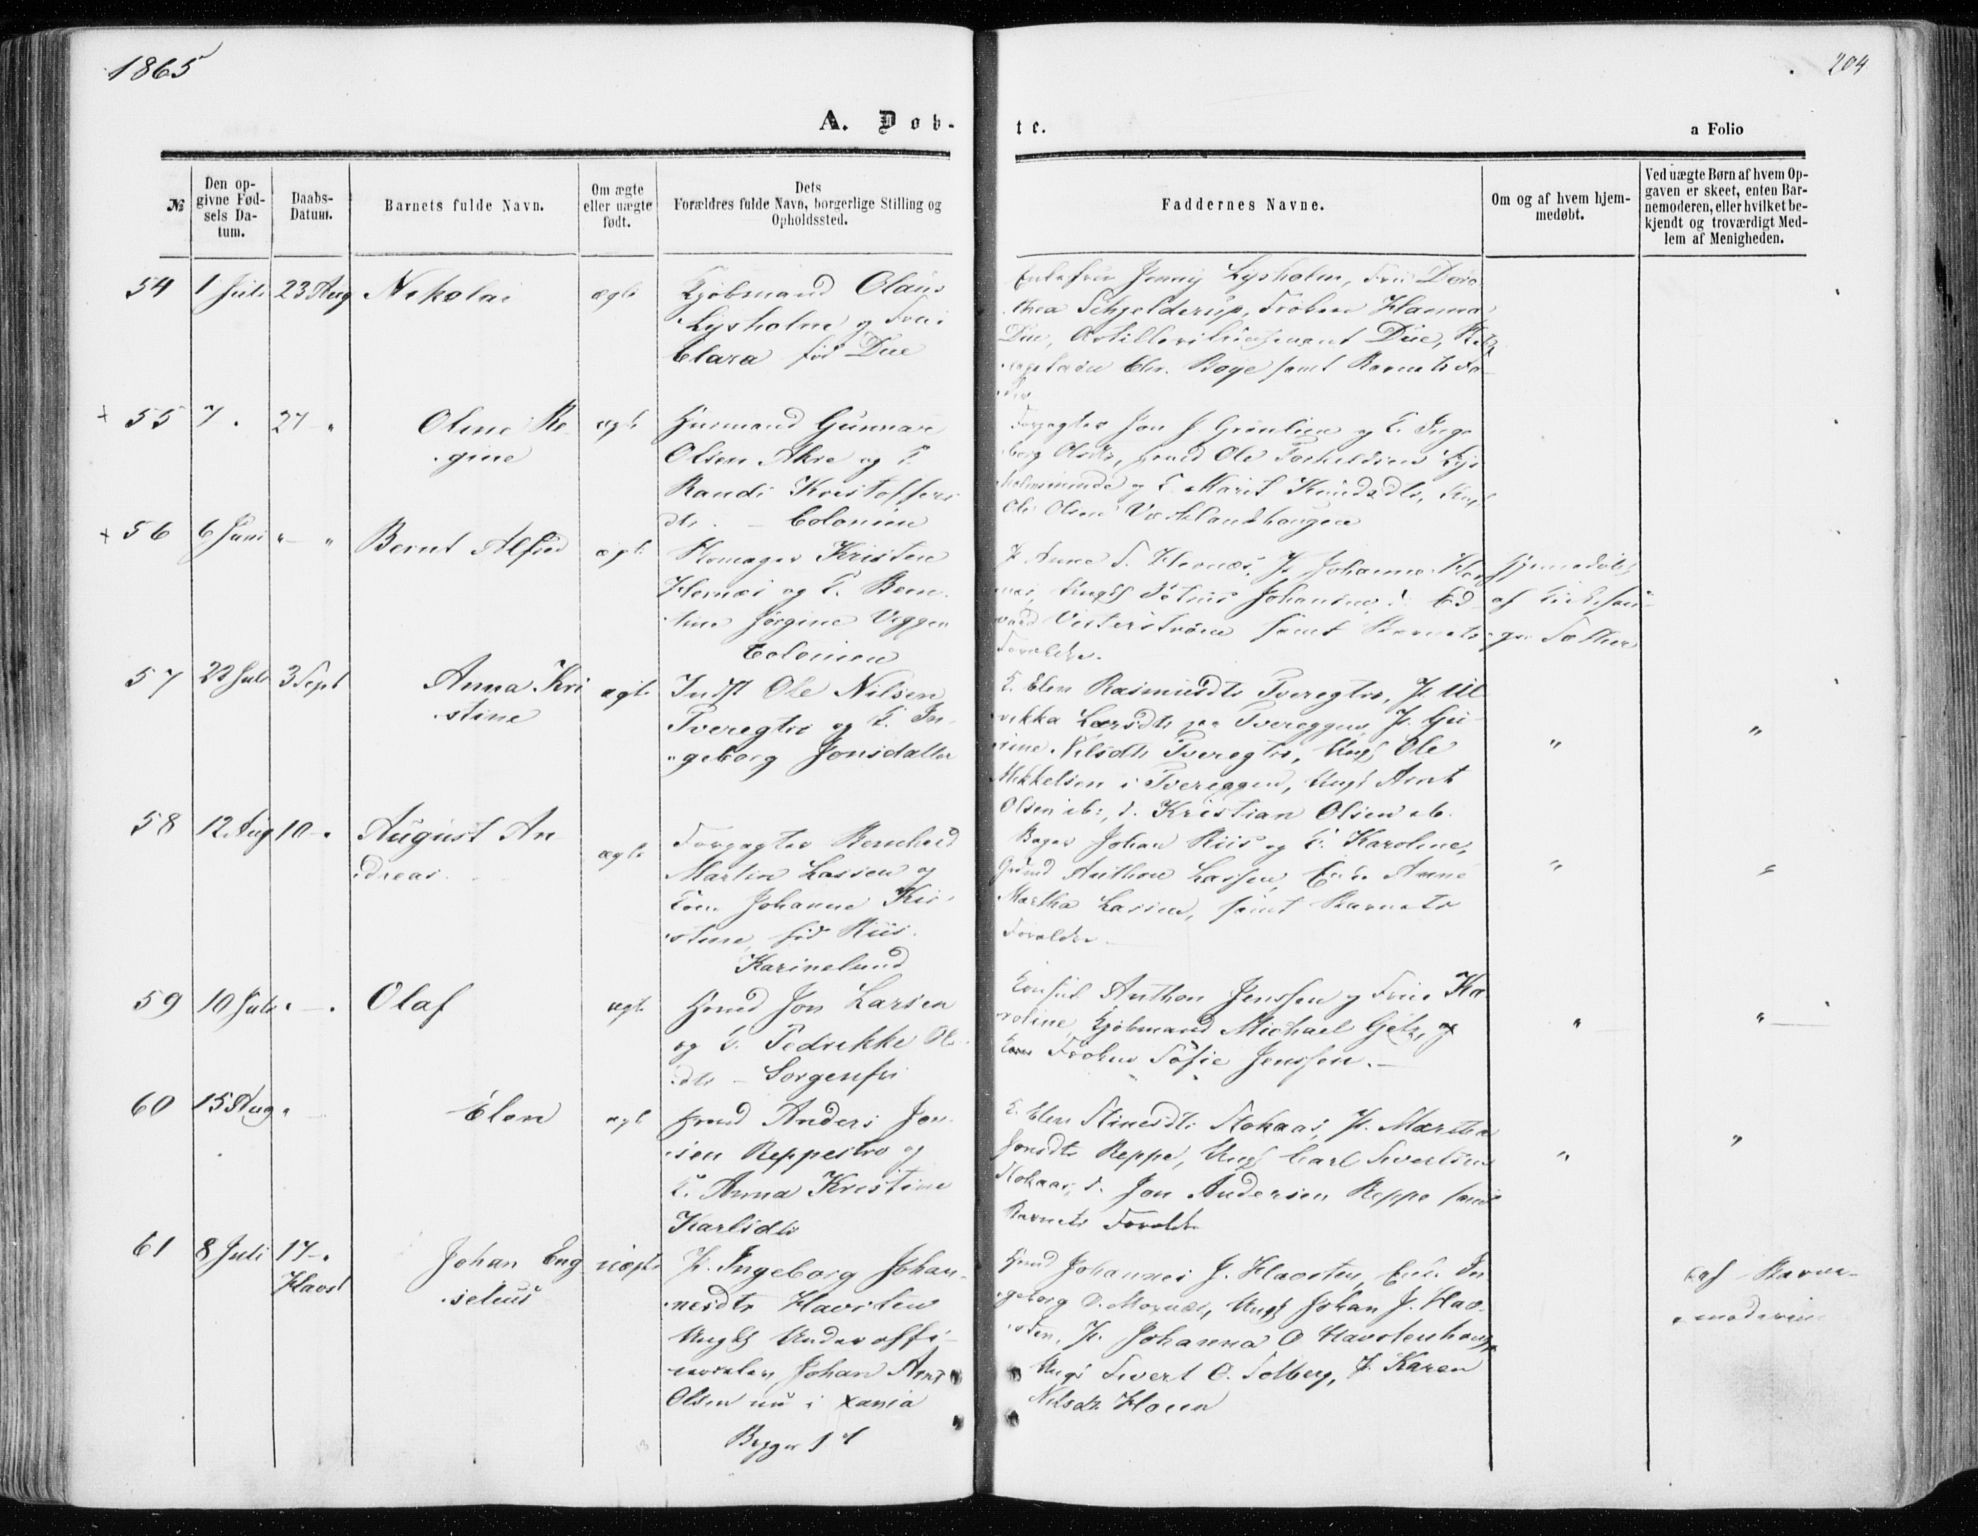 1865
204
A. Døb-
te.
a Folio
№
Den op-
givne Fød-
sels Da-
tum.
Daabs-
Datum.
Barnets fulde Navn.
Om ægte
eller uægte
født.
Dets
Forældres fulde Navn, borgerlige Stilling og
Opholdssted.
Faddernes Navne.
Om og af hvem hjem-
medøbt.
Ved uægte Børn af hvem Op-
gaven er skeet, enten Bar-
nemoderen, eller hvilket be-
kjendt og troværdigt Med-
lem af Menigheden.
54 1 Juli 23 Aug Nikolai ægte
Kjøbmand Olaus
Lysholm og Frue
Clara fød Due
Enkefru Jenny Lysholm, Frü Doro
thea Schjelderup, Frøken Hanna
Due, Due,
Chr. Boye samt Barnets Fa-
+ 55 7 27 - " Oline Re-
gine
ægte
Husmand Gunnar
Olsen Akre og K.
Randi Kristoffers
dtr. - Colonien
Forpagter Jon J. Grinlien og K. Inge
borg Olsdtr, Ole
og K. Marit Knudsdtr,
Ole Olsen
+ 56 6 Juni " - " Bernt Alfred ægte
Kristen
Hernæs og K. Bern
tine Jørgine Viggen
Colonien
P. Anne S. Hernæs, P. Johanna
Johansen,
samt Barnets
Forældre.
Hjemmedøbt
af
57 22 Juli 3 Sept Anna Kri
stine
ægte
Indst Ole Nilsen
Tveregtrø og K. In-
geborg Jonsdatter
K. Elen Rasmusdtr Tveregtrø, P. Ul
rikka Larsdtr paa Tvereggen, P. Gu-
rine Nilsdtr Tveregtrø, Ungk Ole
Mikkelsen i Tvereggen, Ungk Arnt
Olsen ib., d. Kristian Olsen ib.
"
"
58 12 Aug 10 - " August An
dreas.
ægte
Forpagter Bernhard
Martin Lassen og
Kone Johanne Kri-
stine, fød Riis.
Karinelund
Bager Johan Riis og K. Karoline,
Anthon Lassen, Enke Anne
Martha Lassen, samt Barnets
Forældre -
"
"
59 10 Juli " - " Olaf ægte
Hmd Jon Larsen
og K. Pedrikke Ol
dtr - Sorgenfri
Konsul Anthon Jenssen og Frue Ka
roline, Kjøbmand Michael Getz, og
Frøken Sofie Jenssen. -
"
"
60 15 Aug " - Elen ægte
Hmd Anders Jon
sen Reppestrø og
K. Anna Kristine
Karlsdtr
K. Elen Stokaas, P. Martha
Jonsdtr Reppe, Ungk Carl Sivertsen
Stokaas, d. Jon Andersen Reppe samt
Barnets Forældre
"
"
61 8 Juli 17 - "
Havst
Johan Eng
selius
uægte
P. Ingeborg Johan-
nesdtr Havsten
Ungkl Underoffi-
Johan Arnt
Olsen nu i Xania
Begges 1st
Hmd Johannes J. Havsten, Enke In-
geborg O. Mornæs, Ungk Johan J. Hav-
sten, P. Johanna O Havstenhaug
Ungk Sivert O. Solberg, P. Karen
Nilsdtr Haven
af Barne-
moderen